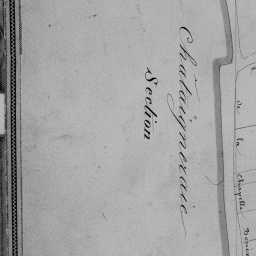 Chataigneraie
Section
de
la
Chapelle